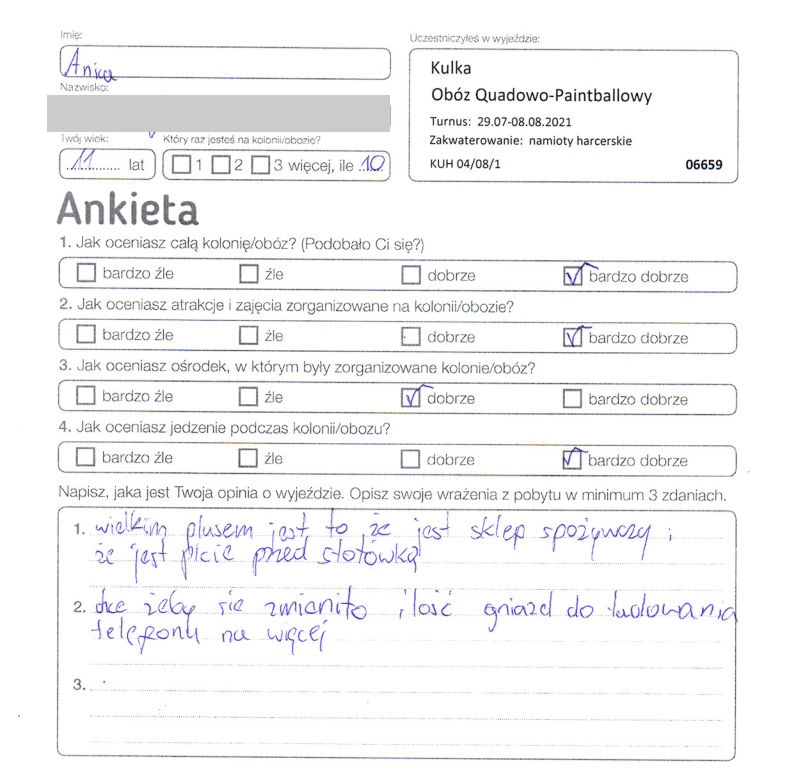 Imię:
Anica
Nazwisko:
Twój wiek:
11 lat
Który raz jesteś na kolonii/obozie?
1 2 3 więcej, ile 10
Uczestniczyłeś w wyjeździe:
Kulka
Obóz Quadowo-Paintballowy
Turnus: 29.07-08.08.2021
Zakwaterowanie: namioty harcerskie
KUH 04/08/1 06659
Ankieta
1. Jak oceniasz całą kolonię/obóz? (Podobało Ci się?)
bardzo źle źle dobrze bardzo dobrze
2. Jak oceniasz atrakcje i zajęcia zorganizowane na kolonii/obozie?
bardzo źle źle dobrze bardzo dobrze
3. Jak oceniasz ośrodek, w którym były zorganizowane kolonie/obóz?
bardzo źle źle dobrze bardzo dobrze
4. Jak oceniasz jedzenie podczas kolonii/obozu?
bardzo źle źle dobrze bardzo dobrze
Napisz, jaka jest Twoja opinia o wyjeździe. Opisz swoje wrażenia z pobytu w minimum 3 zdaniach.
1. wielkim plusem jest to że jest sklep spożywczy i
że jest picie przed stołówką
2. chce żeby sie zmieniło ilość gniazd do ładowania
telefonu na więcej
3.